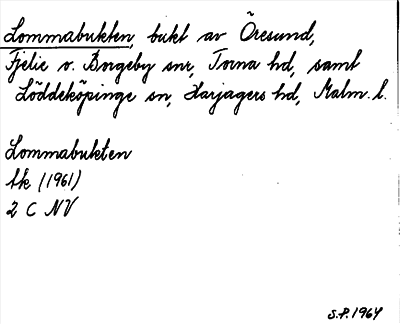 Lommabukten, bukt av Öresund,
Fjelie o. Borgeby snr, Torna hd, samt
Löddeköpinge sn, Harjagers hd, Malm. l.
Lommabukten
tk (1961)
2 C NV
S.P. 1964